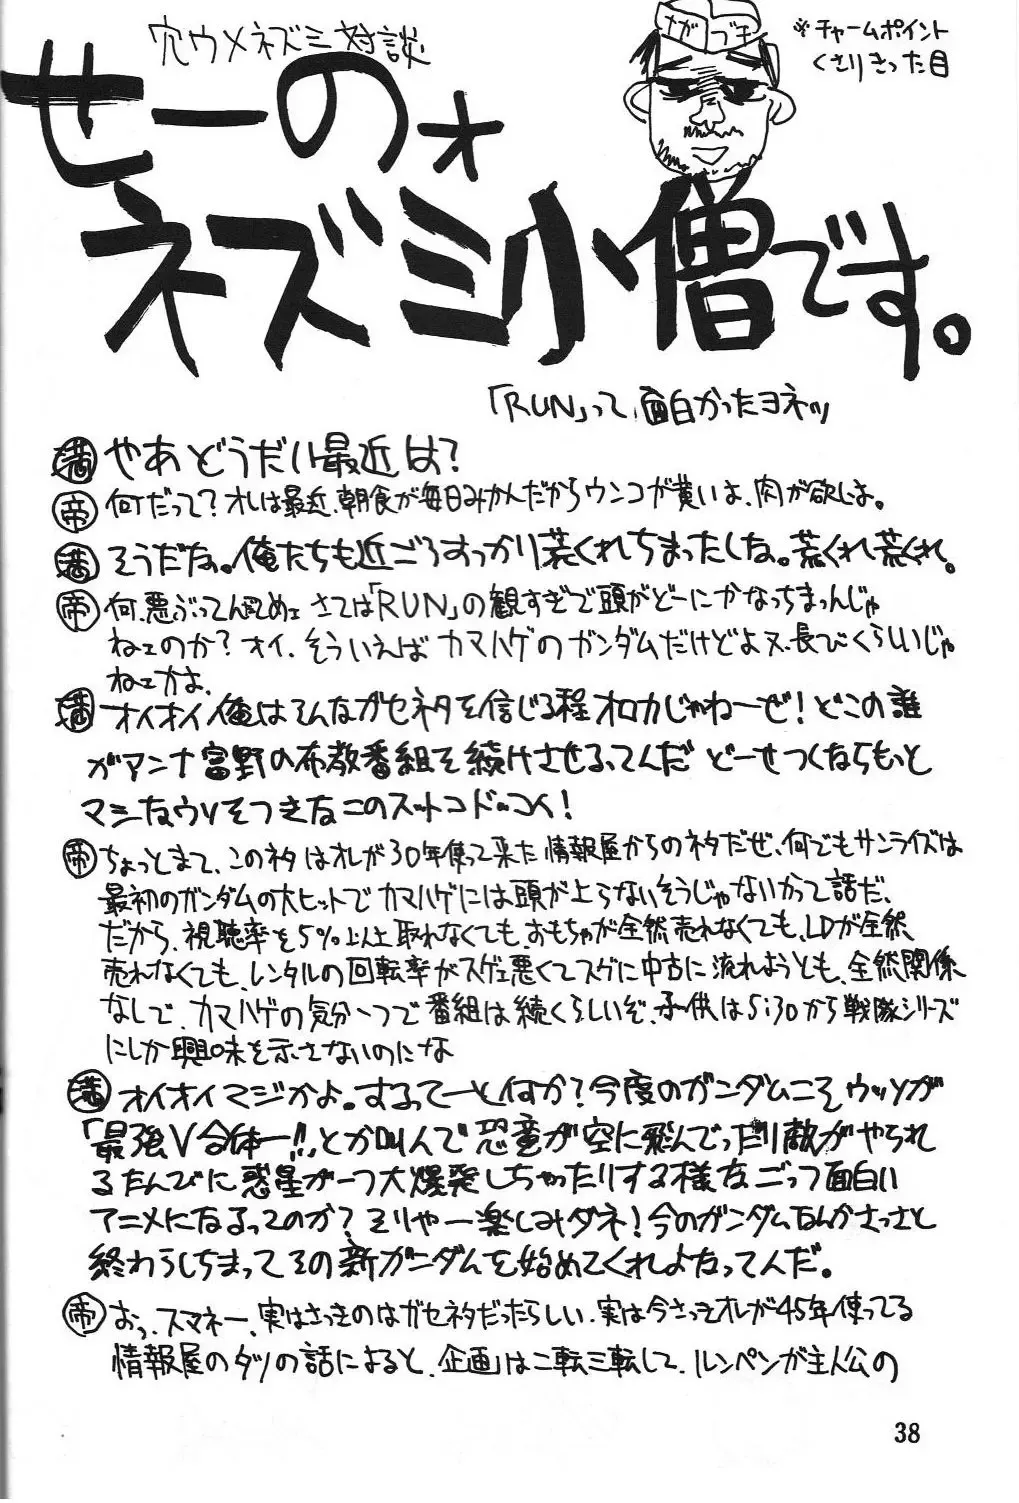 穴ウメネズミ対談
ながブチ
※チャームポイント
くさりきった目
せーのォ
ネズミ小僧です。
「RUN」って、面白かったヨネッ
満 やあどうだい最近は?
帝 何だって?オレは最近、朝食が毎日みかんだからウンコが黄いよ、肉が欲しいよ。
満 そうだな。俺たちも近ごろすっかり荒くれちまったしな。荒くれ荒くれ。
帝 何、悪ぶってんだめェ さては「RUN」の観すぎで頭がどーにかなっちまったんじゃ
ねェのか?オイ、そういえばカマハゲのガンダムだけどよ又、長びくらしいじゃ
ねェかよ。
満 オイオイ俺はそんなガセネタを信じる程オロカじゃねーぜ!どこの誰
がアンナ富野の布教番組を続けさせるってんだ どーせつくならもっと
マシなウソをつきなこのスットコドッコイ!
帝 ちょっとまて、このネタはオレが30年使って来た情報屋からのネタだぜ、何でもサンライズは
最初のガンダムの大ヒットでカマハゲには頭が上らないそうじゃないかって話だ、
だから、視聴率を5%以上取れなくても、おもちゃが全然売れなくても、LDが全然
売れなくても、レンタルの回転率がスゲェ悪くてスグに中古に流れようとも、全然関係
なしで、カマハゲの気分一つで番組は続くらしいぞ、子供は5:30から戦隊シリーズ
にしか興味を示さないのにな
満 オイオイマジかよ。するってーと何か?今度のガンダムこそウッソが
「最強V合体ー!!」とか叫んで恐竜が空に飛んでったり敵がやられ
るたんびに惑星が一つ大爆発しちゃったりする様なごっつ面白い
アニメになるってのか?そりゃー楽しみダネ!今のガンダムなんかさっさと
終わらしちまってその新ガンダムを始めてくれよなってんだ。
帝 おっ、スマネー、実はさっきのはガセネタだったらしい、実は今さっきオレが45年使ってる
情報屋のダンの話によると、企画は二転三転して、ルンペンが主人公の
38